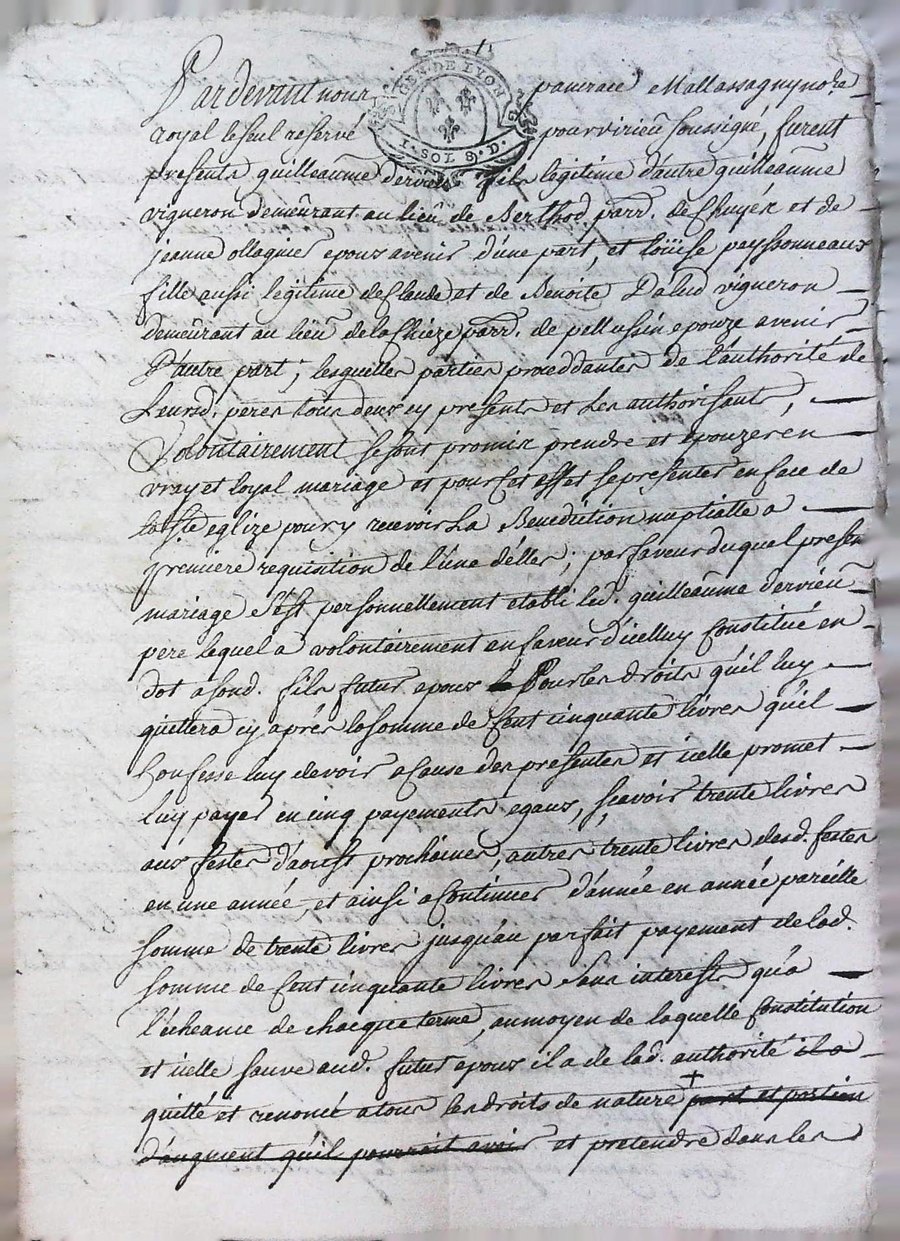 GEN. DE LYON
1. SOL 8. D.
Pardevant nous pancrace Mallassagny no.re
royal le seul reservé pour virieu soussigné, furent
presents guilleaûme dervieu fils legitime d'autre guilleaûme
vigneron demeûrant au lieû de Berthod parr. de Chuyér et de
jeanne ollagnier epoux avenir d'une part, et loüise peyssonneaux
fille aussi legitime de Claude et de Benoite Dalud vigneron
demeûrant au lieû de la Chieze parr. de pellussin epouze avenir
D'autre part; lesquelles parties proceddantes de l'authorité de
Leursd. peres tous deux cy presents et Les authorisants,
Volontairement se sont promis prendre et epouzer en
vray et loyal mariage et pour cet effet se presenter en face de
la Ste eglize pour y recevoir La Benediction nuptialle a
premiere requisition de l'une d'elles; par faveur duquel presen
mariage s'est personnellement etabli led. guilleaûme dervieû
pere lequel a volontairement en faveur d'icelluy Constitué en
dot a sond. fils futur epoux Pour les droits qu'il luy
quittera cy après la somme de Cent cinquante livres qu'il
Confesse luy devoir a Cause des presentes et icelle promet
luy payer en cinq payements egaux, sçavoir trente livres
aux festes d'aoust prochaines, autres trente livres desd. festes
en une année, et ainsi a Continuer d'année en année pareille
somme de trente livres jusqu'au parfait payement de lad.
somme de Cent cinquante livres sans interests qu'a
l'écheance de chacque terme, au moyen de laquelle Constitution
et icelle sauve aud. futur epoux il a de lad. authorité il a
quitté et renoncé a tous les droits de nature + part et portion
d'augment qu'il pourroit avoir et pretendre dans les